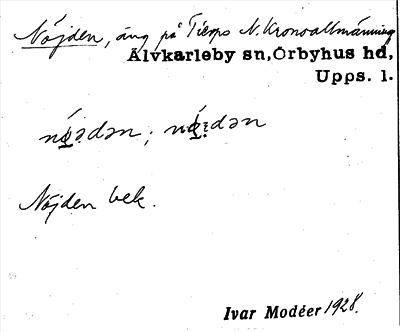 Nöjden, äng på Tierps N. Kronoallmänning
Älvkarleby sn, Örbyhus hd,
Upps. l.
Nöjden bek.
Ivar Modéer 1928.